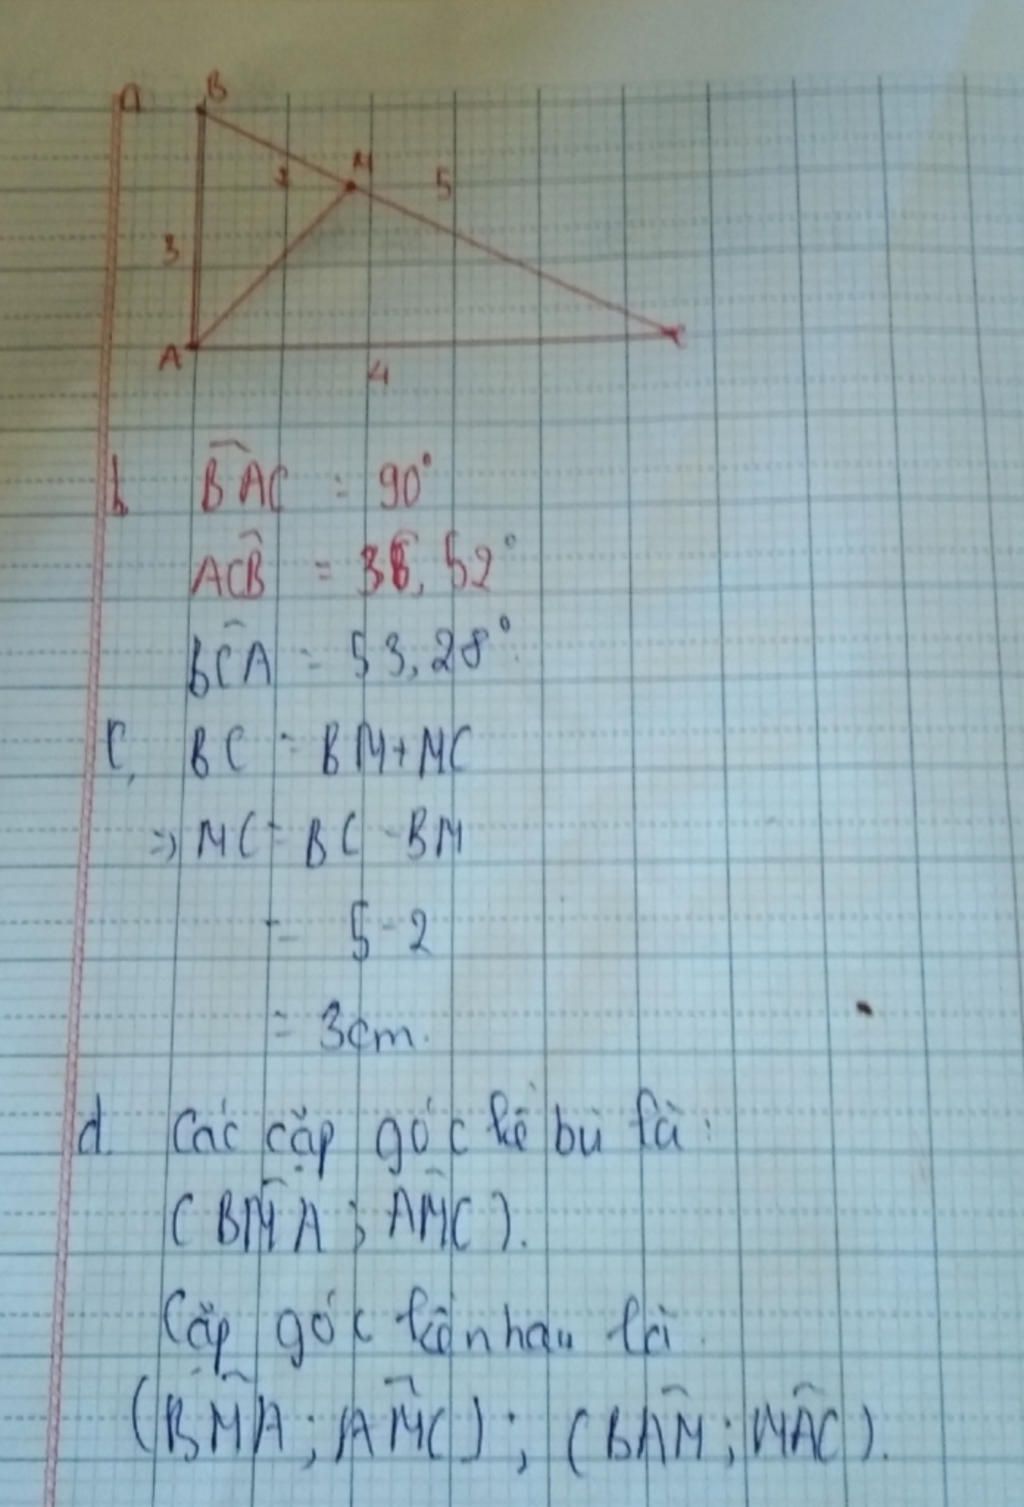 a B
2 M 5
3
A C
4
b BAC = 90°
ACB = 36,52°
BCA = 53,28°
C, BC = BM + MC
=> MC = BC - BM
= 5 - 2
= 3cm.
d. Các cặp góc kề bù là:
(BMA; AMC).
Cặp góc kề nhau là
(BMA; AMC); (BAM; MAC).